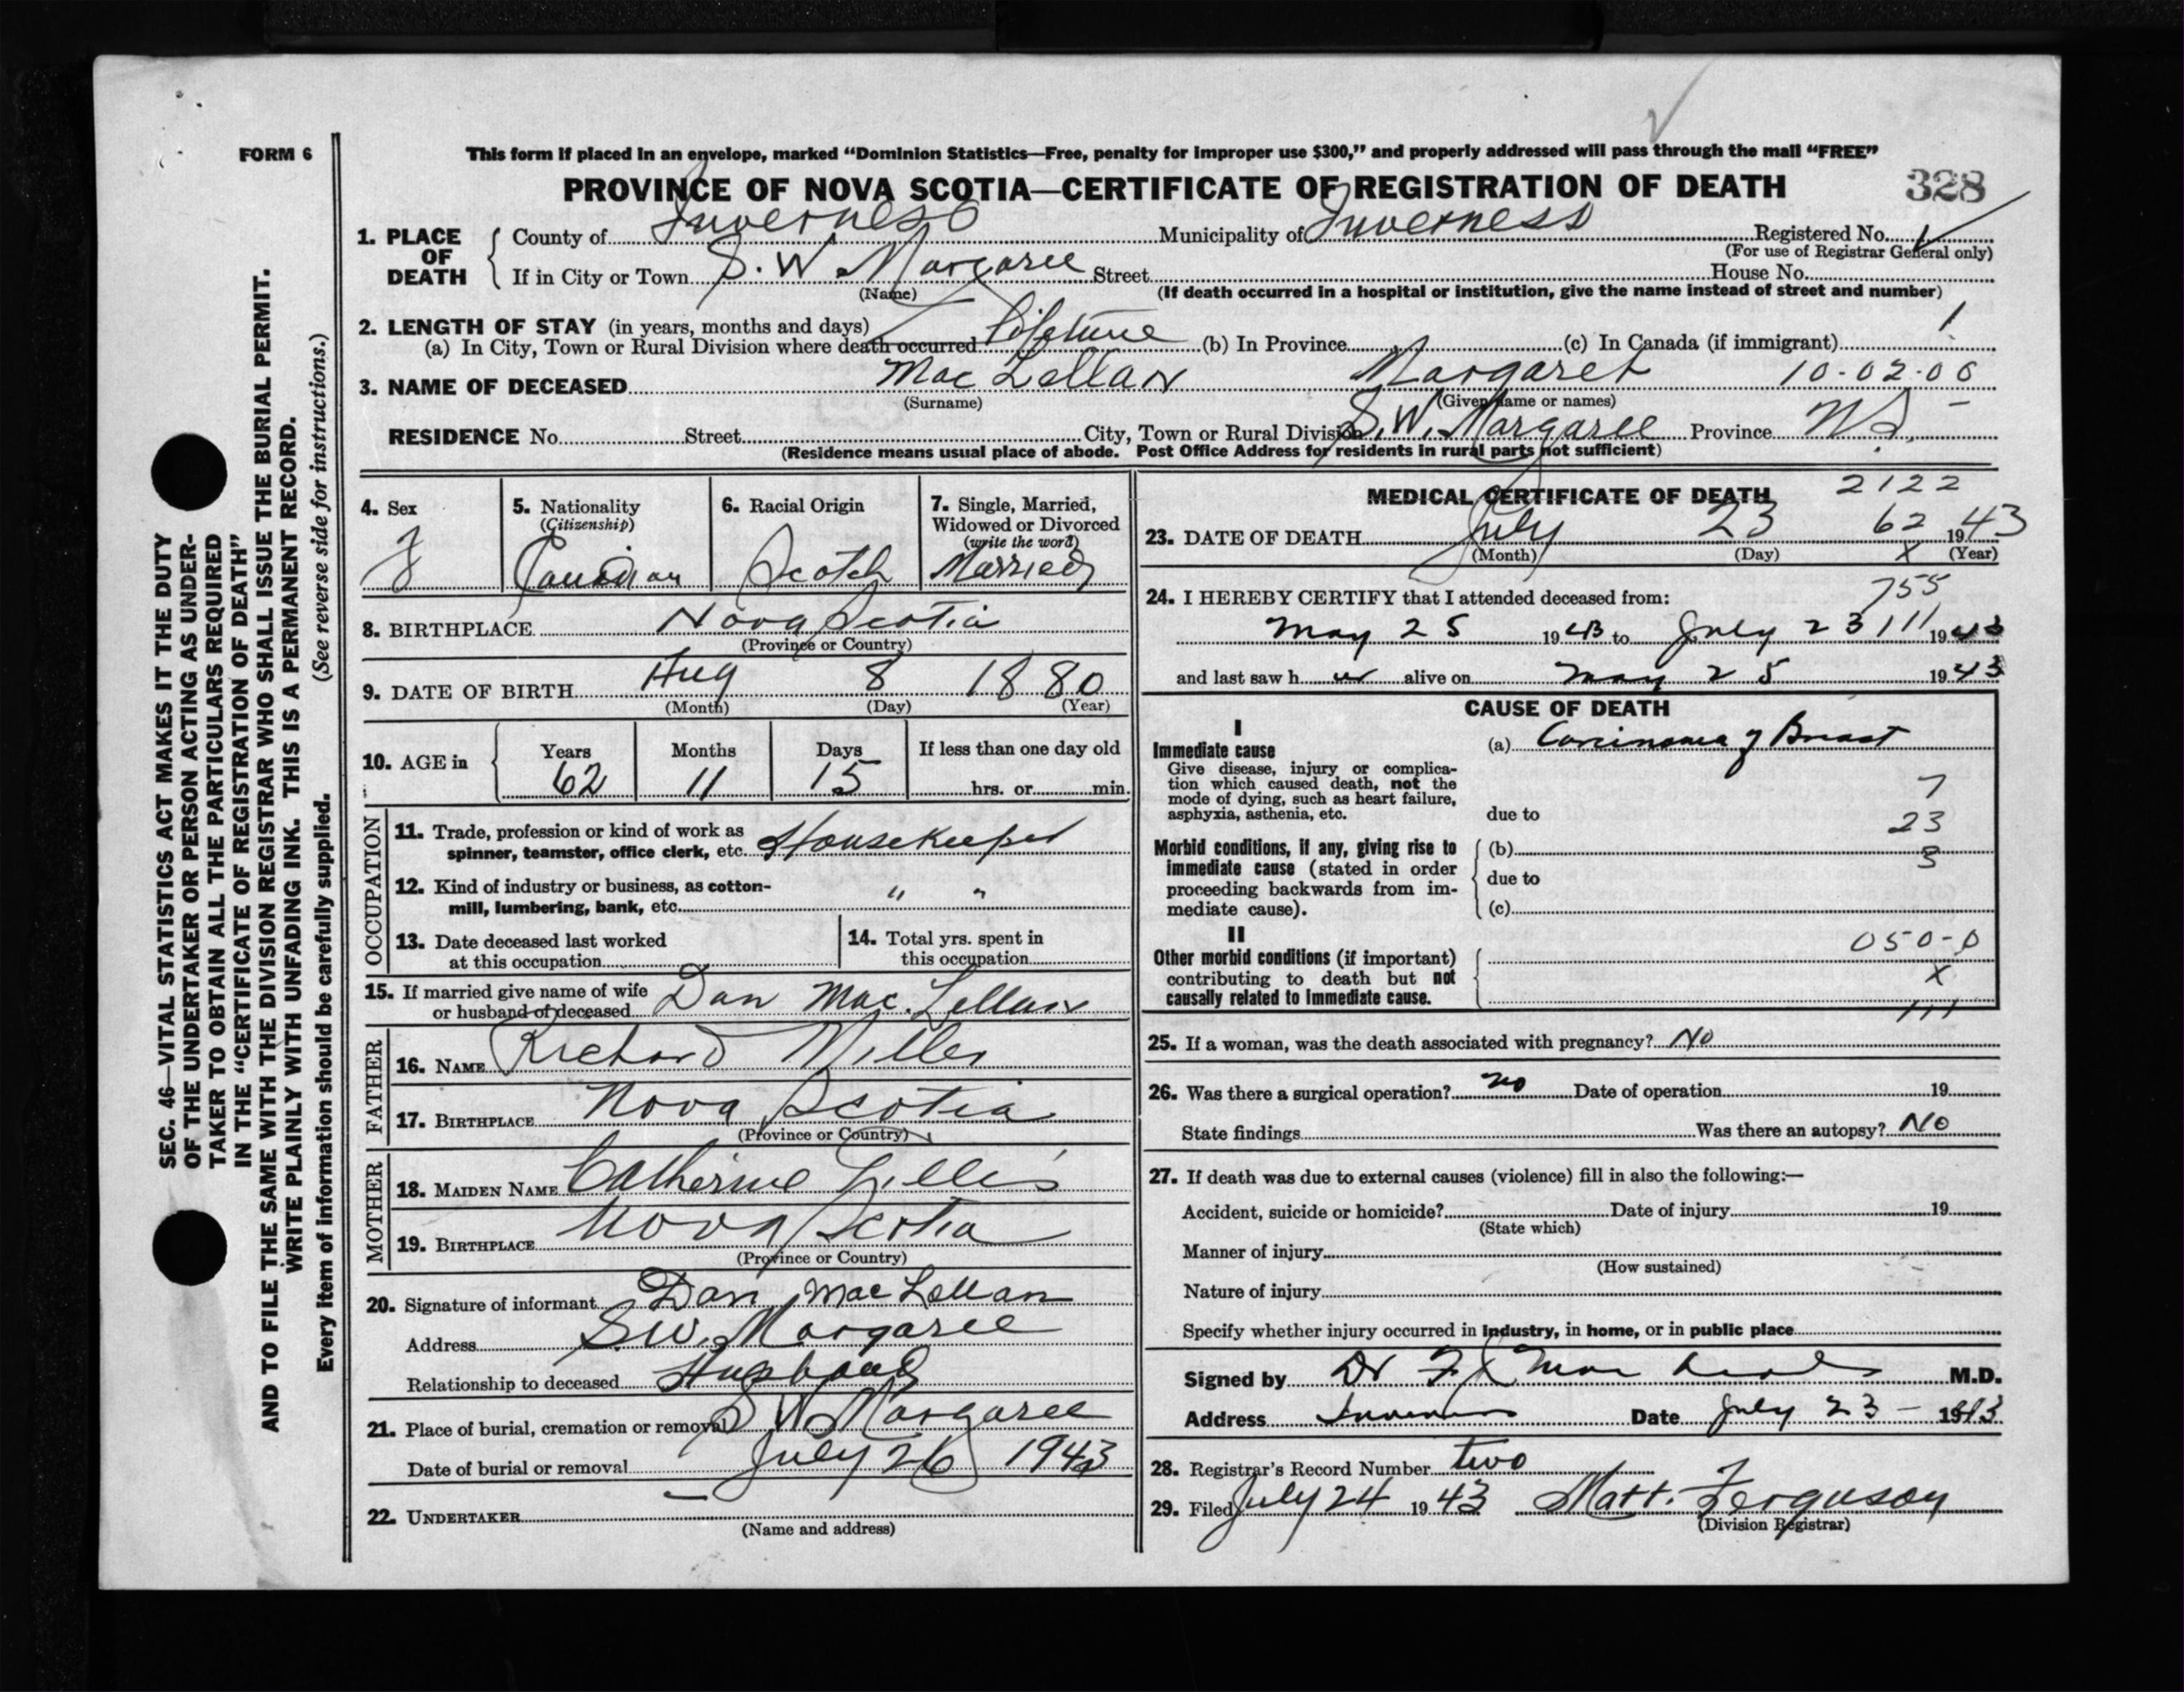 FORM 6
This form if placed in an envelope, marked “Dominion Statistics—Free, penalty for improper use $300,” and properly addressed will pass through the mail “FREE”
PROVINCE OF NOVA SCOTIA—CERTIFICATE OF REGISTRATION OF DEATH
328
1. PLACE OF DEATH
County of Inverness Municipality of Inverness Registered No. 1
(For use of Registrar General only)
If in City or Town S. W. Margaree Street House No.
(Name) (If death occurred in a hospital or institution, give the name instead of street and number)
2. LENGTH OF STAY (in years, months and days)
(a) In City, Town or Rural Division where death occurred Lifetime (b) In Province (c) In Canada (if immigrant) 1
3. NAME OF DECEASED Mac Lellan Margaret 10-02-06
(Surname) (Given name or names)
RESIDENCE No. Street City, Town or Rural Division S. W. Margaree Province N.S.
(Residence means usual place of abode. Post Office Address for residents in rural parts not sufficient)
4. Sex
F
5. Nationality
(Citizenship)
Canadian
6. Racial Origin
Scotch
7. Single, Married,
Widowed or Divorced
(write the word)
Married
8. BIRTHPLACE Nova Scotia
(Province or Country)
9. DATE OF BIRTH Aug 8 1880
(Month) (Day) (Year)
10. AGE in
Years Months Days If less than one day old
62 11 15 hrs. or min.
OCCUPATION
11. Trade, profession or kind of work as
spinner, teamster, office clerk, etc. Housekeeper
12. Kind of industry or business, as cotton-
mill, lumbering, bank, etc. " "
13. Date deceased last worked
at this occupation
14. Total yrs. spent in
this occupation
15. If married give name of wife
or husband of deceased Dan Mac. Lellan
FATHER
16. NAME Richard Miller
17. BIRTHPLACE Nova Scotia
(Province or Country)
MOTHER
18. MAIDEN NAME Catherine Gillis
19. BIRTHPLACE Nova Scotia
(Province or Country)
20. Signature of informant Dan Mac Lellan
Address S.W. Margaree
Relationship to deceased Husband
21. Place of burial, cremation or removal S W Margaree
Date of burial or removal July 26 1943
22. UNDERTAKER —
(Name and address)
MEDICAL CERTIFICATE OF DEATH 2122
23. DATE OF DEATH July 23 62 1943
(Month) (Day) X (Year)
24. I HEREBY CERTIFY that I attended deceased from: 755
May 25 1943 to July 23 111 1943
and last saw h er alive on May 25 1943
CAUSE OF DEATH
I
Immediate cause
Give disease, injury or complica-
tion which caused death, not the
mode of dying, such as heart failure,
asphyxia, asthenia, etc.
(a) Carcinoma of Breast
7
due to
23
Morbid conditions, if any, giving rise to
immediate cause (stated in order
proceeding backwards from im-
mediate cause).
(b) 3
due to
(c)
II
Other morbid conditions (if important)
contributing to death but not
causally related to immediate cause.
050-0
X
111
25. If a woman, was the death associated with pregnancy? No
26. Was there a surgical operation? no Date of operation 19
State findings Was there an autopsy? No
27. If death was due to external causes (violence) fill in also the following:—
Accident, suicide or homicide? Date of injury 19
(State which)
Manner of injury
(How sustained)
Nature of injury
Specify whether injury occurred in industry, in home, or in public place
Signed by Dr M.D.
Address Inverness Date July 23 - 1943
28. Registrar's Record Number two
29. Filed July 24 1943 Matt. Ferguson
(Division Registrar)
SEC. 46—VITAL STATISTICS ACT MAKES IT THE DUTY
OF THE UNDERTAKER OR PERSON ACTING AS UNDER-
TAKER TO OBTAIN ALL THE PARTICULARS REQUIRED
IN THE “CERTIFICATE OF REGISTRATION OF DEATH”
AND TO FILE THE SAME WITH THE DIVISION REGISTRAR WHO SHALL ISSUE THE BURIAL PERMIT.
WRITE PLAINLY WITH UNFADING INK. THIS IS A PERMANENT RECORD.
Every item of information should be carefully supplied. (See reverse side for instructions.)